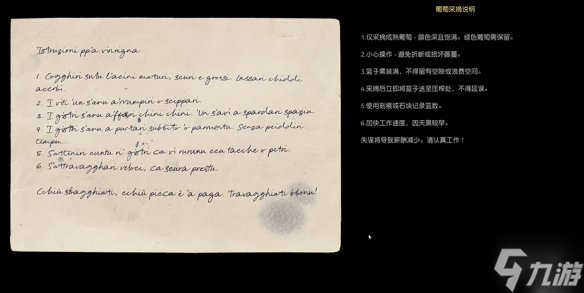 Istruzioni pp'a vinnigna
1. Cogghiri sulu l'acini maturi, scuri e grossi. Lassari chiddi
acerbi.
2. I viti 'un s'anu a rrumpiri o scippari.
3. I gistri s'anu a jinchiri chini chini. 'Un s'avi a spardari spaziu.
4. I gistri s'anu a purtari subbitu 'o parmentu. Senza perdiri
tempu.
5. S'attenini cuntu ri gistri ca vi rununu ccu tacche o petri.
6. S'attravagghari veloci, ca scura prestu.
Cchiù sbagghiati, cchiù picca è 'a paga. Travagghiati bbonu!
葡萄采摘说明
1.仅采摘成熟葡萄 - 颜色深且饱满。绿色葡萄需保留。
2.小心操作 - 避免折断或损坏藤蔓。
3.篮子需装满，不得留有空隙或浪费空间。
4.采摘后立即将篮子送至压榨处，不得延误。
5.使用刻痕或石块记录篮数。
6.加快工作速度，因天黑较早。
失误将导致薪酬减少。请认真工作！
九游